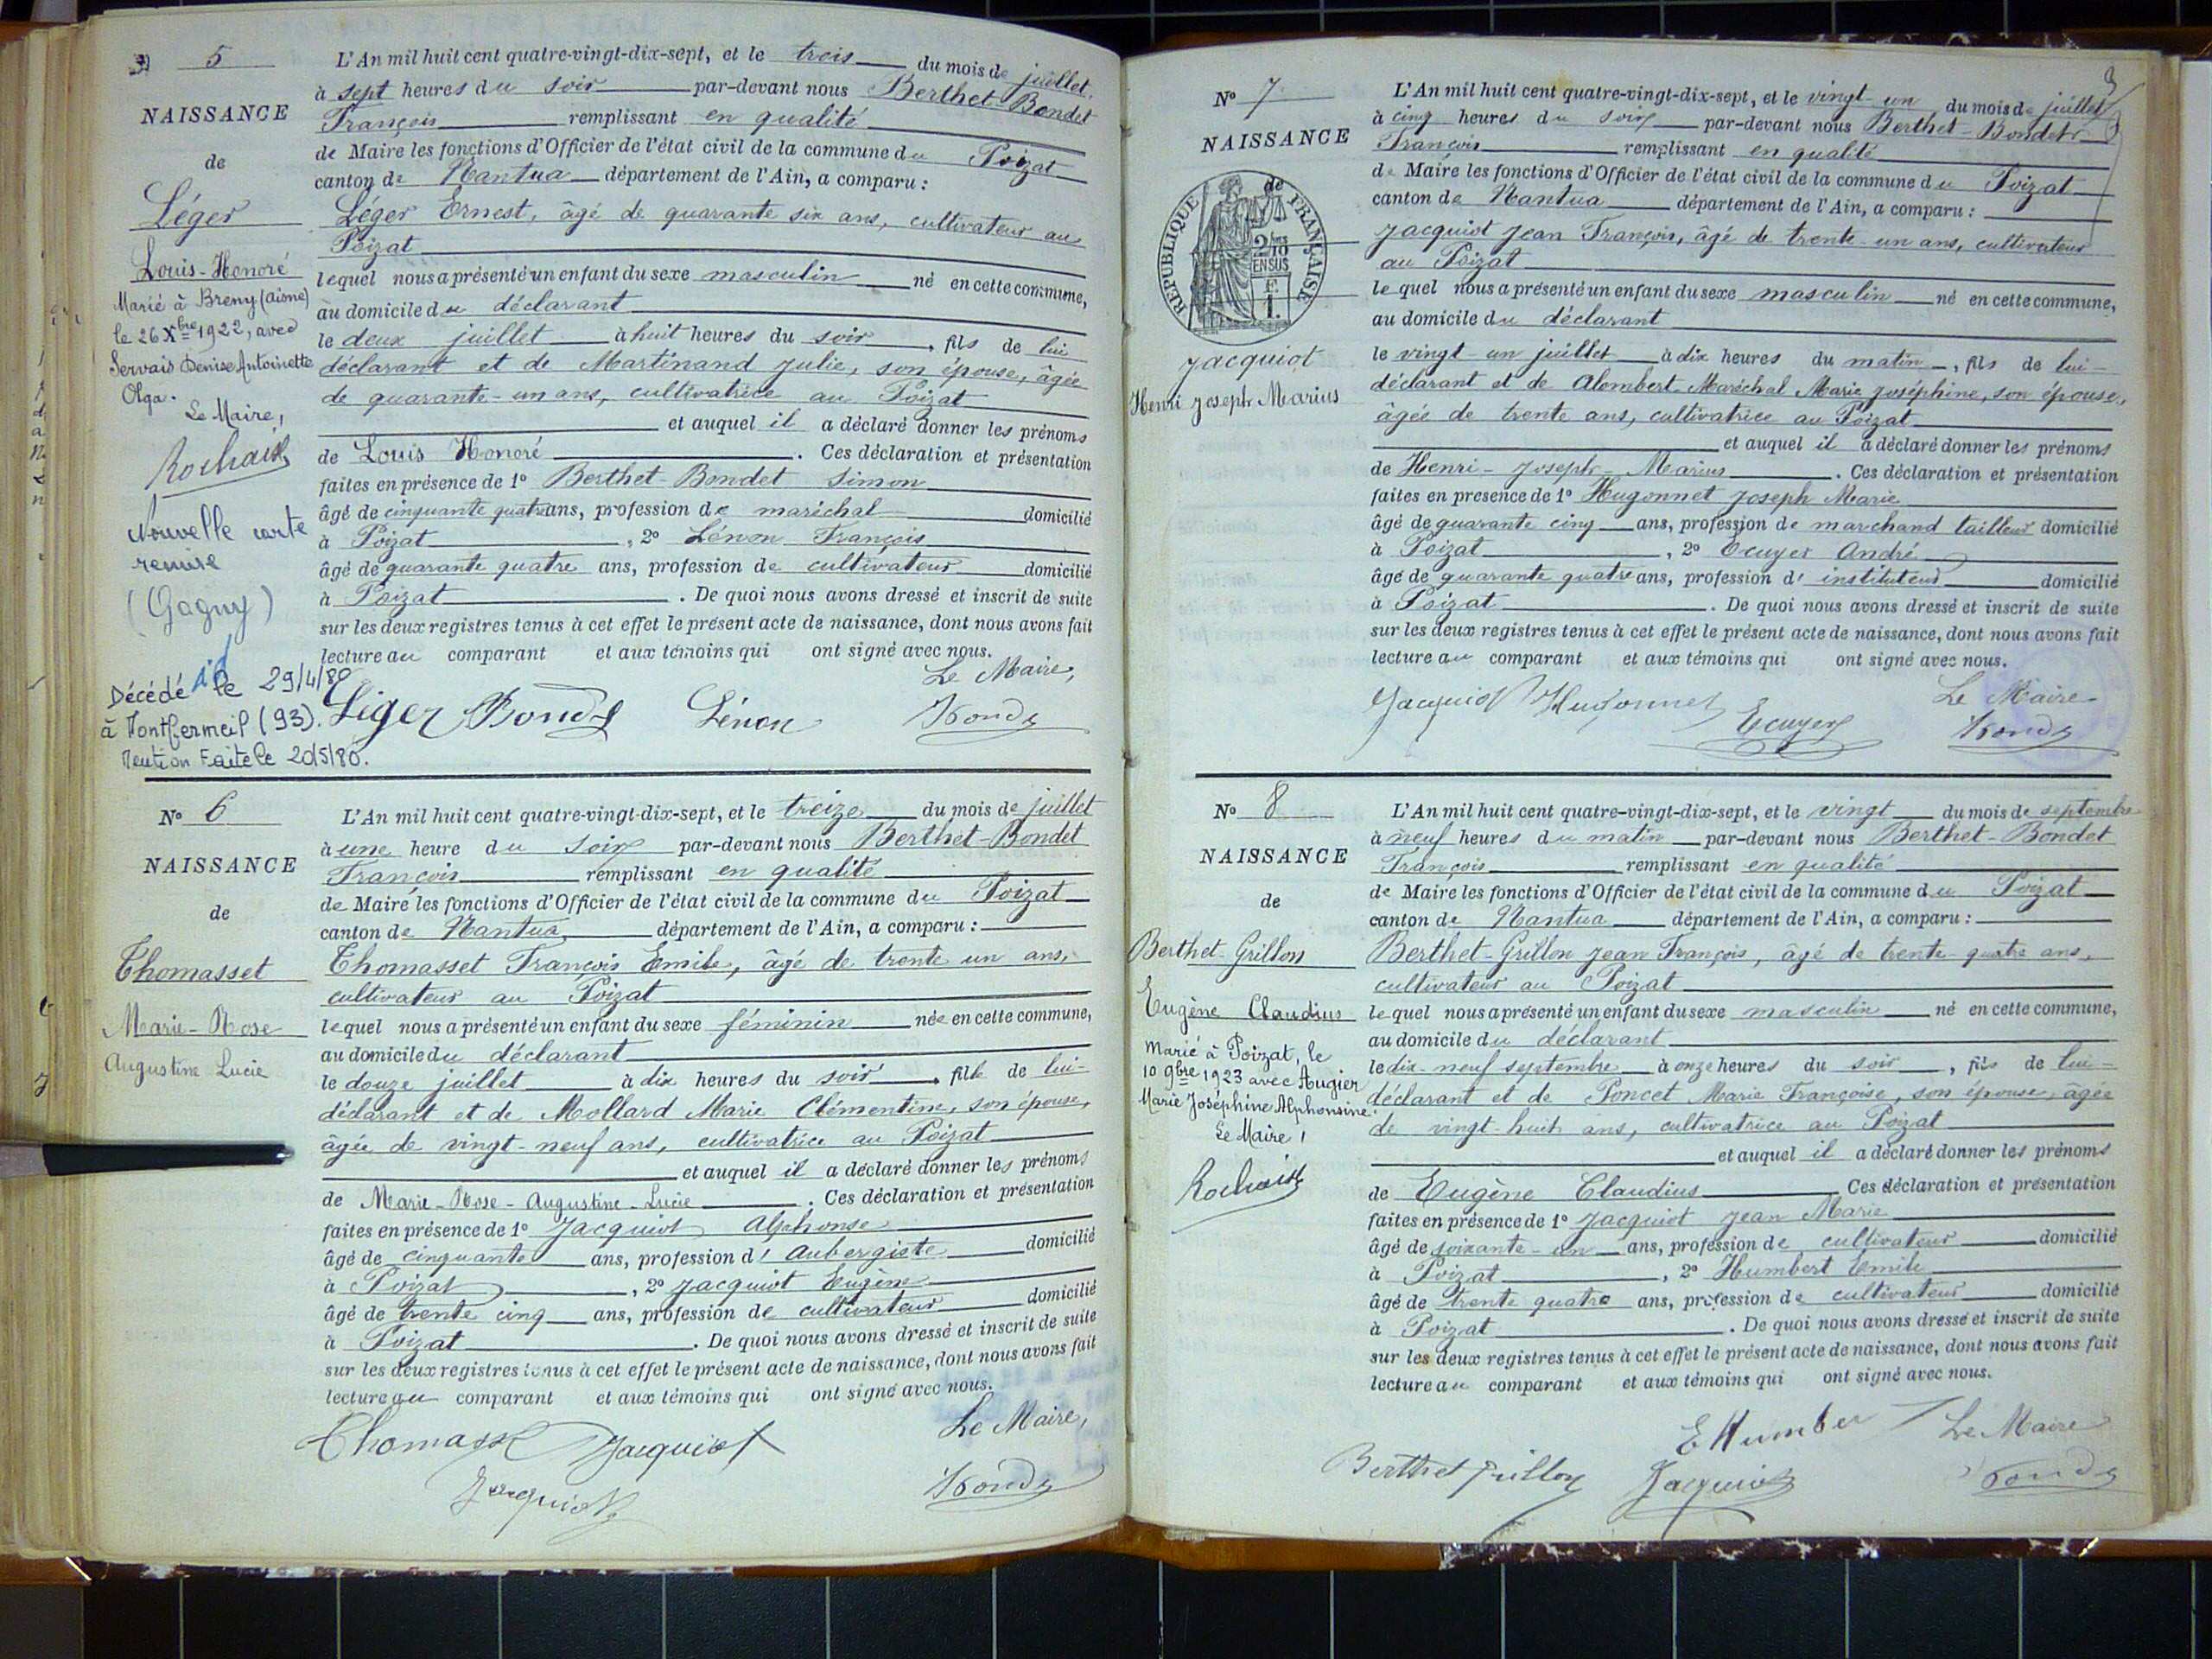 5
NAISSANCE
de
Léger
Louis-Honoré
Marié à Breny (Aisne)
le 26 Xbre 1922, avec
Servais Denise Antoinette
Olga.
Le Maire,
Rochaix
Nouvelle carte
remise
(Gagny)
Décédé le 29/4/80
à Montfermeil (93).
Mention Faite le 20/5/80.
L'An mil huit cent quatre-vingt-dix-sept, et le trois du mois de juillet,
à sept heures du soir par-devant nous Berthet-Bondet
François remplissant en qualité
de Maire les fonctions d'Officier de l'état civil de la commune du Poizat
canton de Nantua département de l'Ain, a comparu :
Léger Ernest, âgé de quarante six ans, cultivateur au
Poizat
lequel nous a présenté un enfant du sexe masculin né en cette commune,
au domicile du déclarant
le deux juillet à huit heures du soir, fils de lui
déclarant et de Martinand Julie, son épouse, âgée
de quarante-un ans, cultivatrice au Poizat
et auquel il a déclaré donner les prénoms
de Louis Honoré. Ces déclaration et présentation
faites en présence de 1° Berthet-Bondet Simon
âgé de cinquante quatre ans, profession de maréchal domicilié
à Poizat, 2° Lénon François
âgé de quarante quatre ans, profession de cultivateur domicilié
à Poizat. De quoi nous avons dressé et inscrit de suite
sur les deux registres tenus à cet effet le présent acte de naissance, dont nous avons fait
lecture au comparant et aux témoins qui ont signé avec nous.
Le Maire,
Léger Bondet Lénon Bondet
N° 6
NAISSANCE
de
Thomasset
Marie-Rose
Augustine Lucie
L'An mil huit cent quatre-vingt-dix-sept, et le treize du mois de juillet
à une heure du soir par-devant nous Berthet-Bondet
François remplissant en qualité
de Maire les fonctions d'Officier de l'état civil de la commune du Poizat
canton de Nantua département de l'Ain, a comparu :
Thomasset François Emile, âgé de trente un ans,
cultivateur au Poizat
lequel nous a présenté un enfant du sexe féminin née en cette commune,
au domicile du déclarant
le douze juillet à dix heures du soir, fille de lui-
déclarant et de Mollard Marie Clémentine, son épouse,
âgée de vingt-neuf ans, cultivatrice au Poizat
et auquel il a déclaré donner les prénoms
de Marie-Rose-Augustine-Lucie. Ces déclaration et présentation
faites en présence de 1° Jacquiot Alphonse
âgé de cinquante ans, profession d'Aubergiste domicilié
à Poizat, 2° Jacquiot Eugène
âgé de trente cinq ans, profession de cultivateur domicilié
à Poizat. De quoi nous avons dressé et inscrit de suite
sur les deux registres tenus à cet effet le présent acte de naissance, dont nous avons fait
lecture au comparant et aux témoins qui ont signé avec nous.
Le Maire,
Thomasset Jacquiot
Jacquiot Bondet
N° 7
NAISSANCE
de
RÉPUBLIQUE FRANÇAISE
2/10
EN SUS
F.
1.
Jacquiot
Henri Joseph Marius
L'An mil huit cent quatre-vingt-dix-sept, et le vingt-un du mois de juillet
à cinq heures du soir par-devant nous Berthet-Bondet
François remplissant en qualité
de Maire les fonctions d'Officier de l'état civil de la commune du Poizat
canton de Nantua département de l'Ain, a comparu :
Jacquiot Jean François, âgé de trente-un ans, cultivateur
au Poizat
lequel nous a présenté un enfant du sexe masculin né en cette commune,
au domicile du déclarant
le vingt-un juillet à dix heures du matin, fils de lui-
déclarant et de Alombert-Maréchal Marie Joséphine, son épouse,
âgée de trente ans, cultivatrice au Poizat
et auquel il a déclaré donner les prénoms
de Henri-Joseph-Marius. Ces déclaration et présentation
faites en présence de 1° Hugonnet Joseph Marie
âgé de quarante cinq ans, profession de marchand tailleur domicilié
à Poizat, 2° Ecuyer André
âgé de quarante quatre ans, profession d'instituteur domicilié
à Poizat. De quoi nous avons dressé et inscrit de suite
sur les deux registres tenus à cet effet le présent acte de naissance, dont nous avons fait
lecture au comparant et aux témoins qui ont signé avec nous.
Le Maire
Jacquiot Hugonnet Ecuyer Bondet
N° 8
NAISSANCE
de
Berthet-Grillon
Eugène Claudius
Marié à Poizat, le
10 9bre 1923 avec Augier
Marie Joséphine Alphonsine.
Le Maire,
Rochaix
L'An mil huit cent quatre-vingt-dix-sept, et le vingt du mois de septembre
à neuf heures du matin par-devant nous Berthet-Bondet
François remplissant en qualité
de Maire les fonctions d'Officier de l'état civil de la commune du Poizat
canton de Nantua département de l'Ain, a comparu :
Berthet-Grillon Jean François, âgé de trente-quatre ans,
cultivateur au Poizat
lequel nous a présenté un enfant du sexe masculin né en cette commune,
au domicile du déclarant
le dix-neuf septembre à onze heures du soir, fils de lui-
déclarant et de Poncet Marie Françoise, son épouse, âgée
de vingt-huit ans, cultivatrice au Poizat
et auquel il a déclaré donner les prénoms
de Eugène Claudius Ces déclaration et présentation
faites en présence de 1° Jacquiot Jean Marie
âgé de soixante-un ans, profession de cultivateur domicilié
à Poizat, 2° Humbert Emile
âgé de trente quatre ans, profession de cultivateur domicilié
à Poizat. De quoi nous avons dressé et inscrit de suite
sur les deux registres tenus à cet effet le présent acte de naissance, dont nous avons fait
lecture au comparant et aux témoins qui ont signé avec nous.
E Humbert Le Maire
Berthet Grillon Jacquiot Bondet